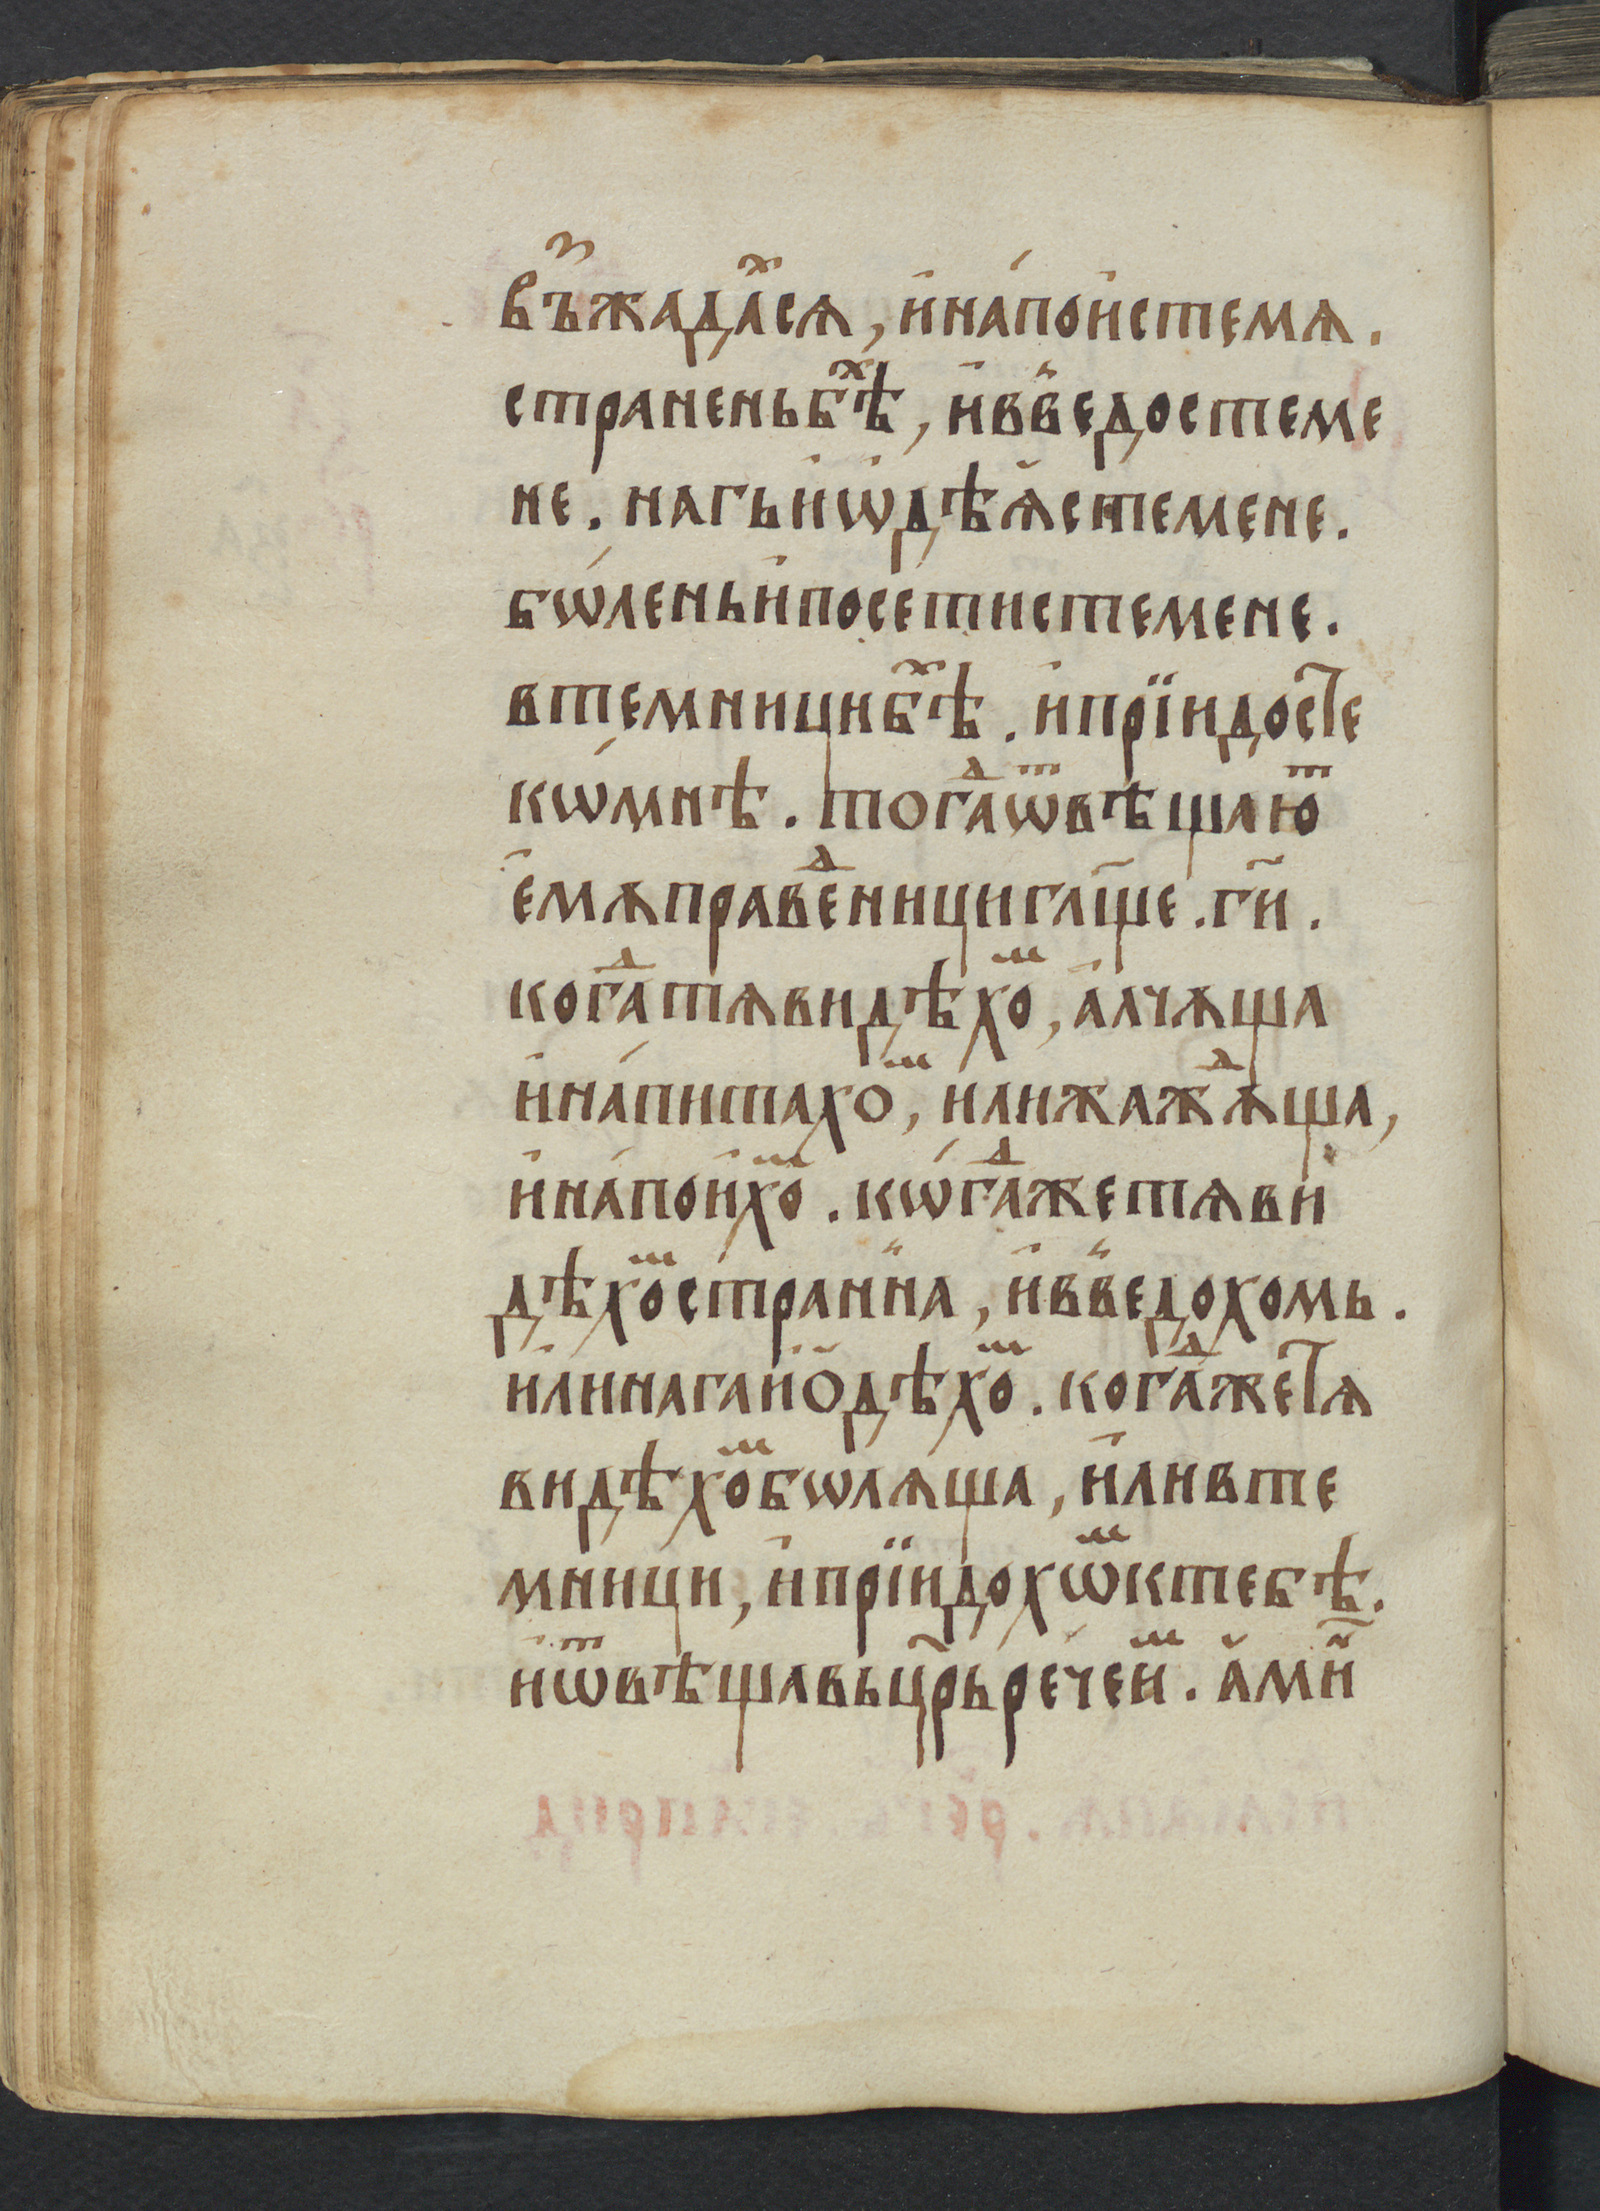 въⷥжадаⷯсѧ, и҆на́пои҆стемѧ.
страненьбѣⷯ, и҆вⸯведостеме
не. нагъи҆ѡ҆дѣѧ҆стемене.
бѡ́леньи҆посетистемене.
втемницибѣⷯ. и҆прїидосте
кѡ́мнѣ. тогаⷣѿвѣщаюⷮ
е҆мѫправеⷣницигл҃ще. гⷭ҇и.
когаⷣтѧвидѣхоⷨ, а҆лчѫща
и҆на́питахоⷨ, илижажⷣѫща,
и҆на́пои҆хоⷨ. кѡ́гаⷣжетѧви
дѣхоⷨстранⸯна, и҆вⸯведохомь.
и҆линагаи҆ѻдѣхоⷨ. когаⷣжетѧ
видѣхоⷨбѡлѧща, и҆ливте
мници, и҆прїидохѡⷨктебѣ.
и҆ѿвѣщавьцр҃ьре́чеиⷨ. а҆ми҃